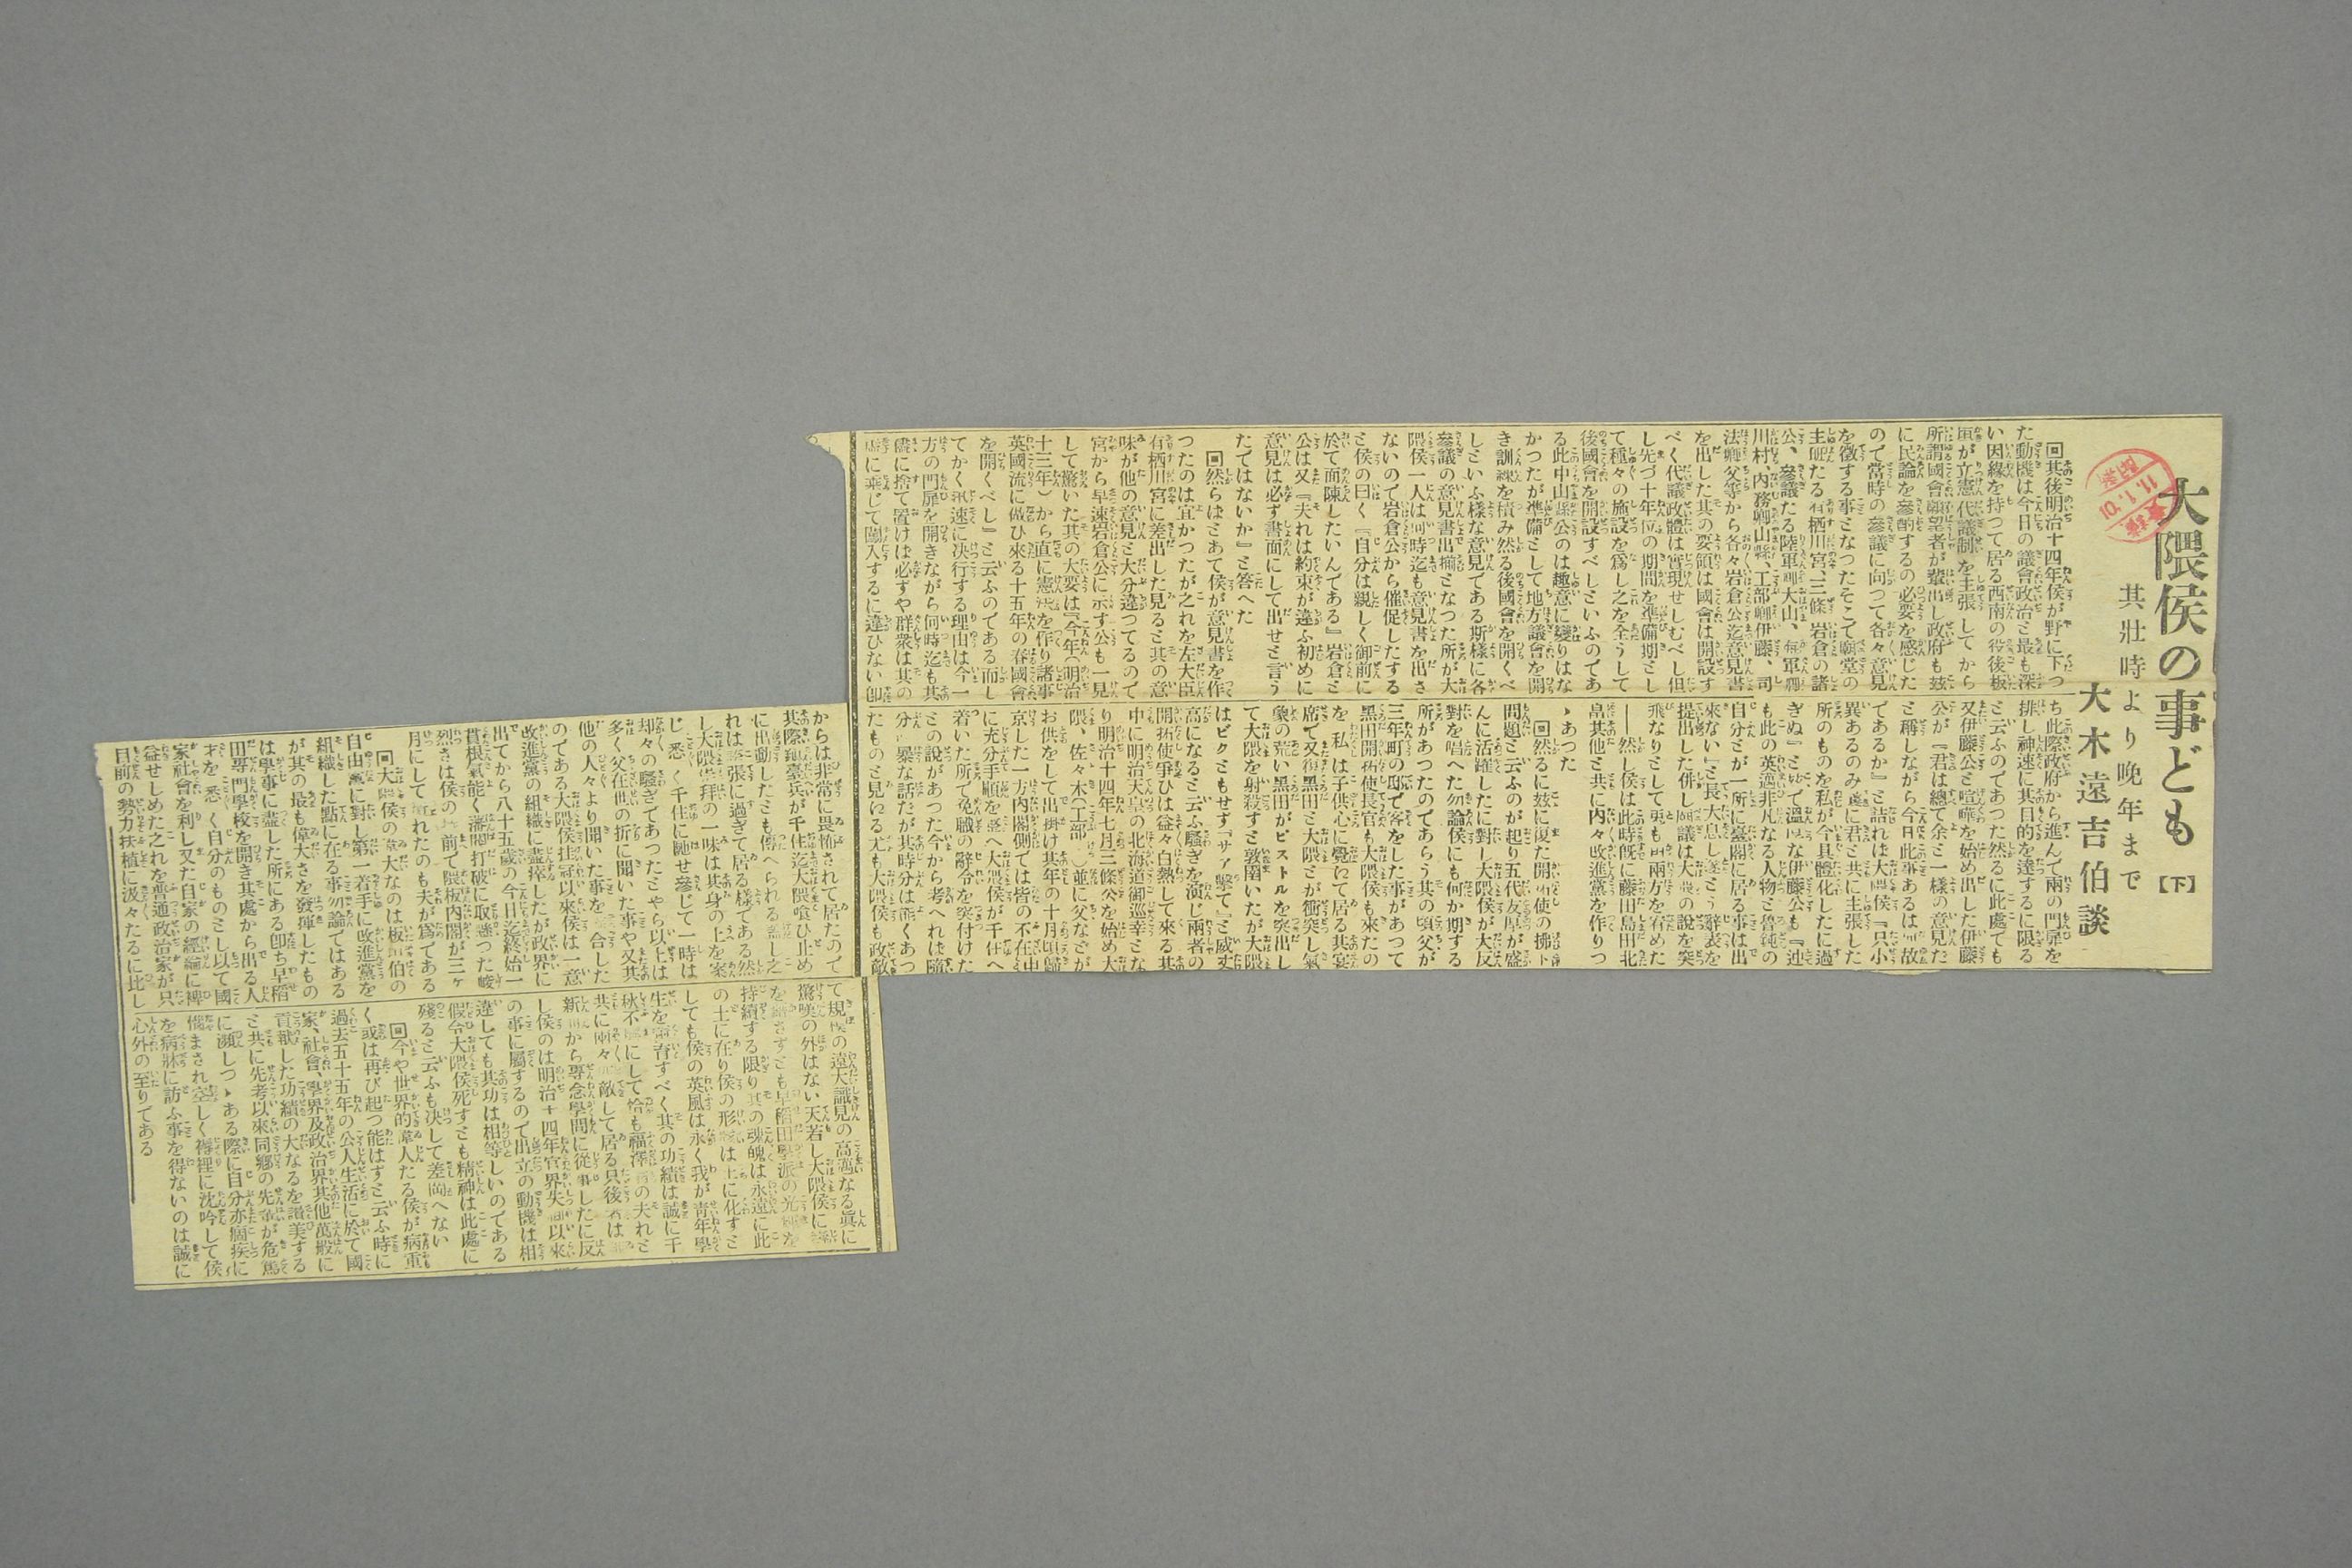 大隈侯の事ども【下】
其壯時より晩年まで
大木遠吉伯談
11.1.10
回其後明治十四年侯が野に下つ
た動機は今日の議會政治と最も深
い因緣を持つて居る西南の役後板
垣が立憲代議制を主張してから
所謂國會願望者が輩出し政府も玆
に民論を參酌するの必要を感じた
ので當時の參議に向つて各々意見
を徵する事となつたそこで廟堂の
主班たる有栖川宮、三條岩倉の諸
公、參議たる陸軍卿大山、海軍卿
川村、内務卿山縣、工部卿伊藤、司
法卿父等から各々岩倉公迄意見書
を出した其の要領は國會は開設す
べく代議政體は實現せしむべし但
し先づ十年位の期間を準備期とし
て種々の施設を爲し之を全うして
後國會を開設すべしといふのであ
る此中山縣公のは趣意に變りはな
かつたが準備として地方議會を開
き訓練を積み然る後國會を開くべ
しといふ樣な意見である斯樣に各
參議の意見書出揃となつた所が大
隈侯一人は何時迄も意見書を出さ
ないので岩倉公から催促したする
と侯の曰く『自分は親しく御前に
於て面陳したいんである』岩倉
公は又『夫れは約束が違ふ初めに
意見は必ず書面にして出せと言う
たではないか』と答へた
回然らばとあて侯が意見書を作
つたのは宜かつたが之れを左大臣
有栖川宮に差出した見ると其の意
味が他の意見と大分違つてるので
宮から早速岩倉公に示す公も一見
して驚いた其の大要は『今年(明治
十三年)から直に憲法を作り諸事
英國流に倣ひ來る十五年の春國會
を開くべし』と云ふのである而し
てかく迅速に決行する理由は今一
方の門扉を開きながら何時迄も其
儘に捨て置けば必ずや群衆は其の
虛に乘じて闖入するに違ひない卽
ち此際政府から進んで兩の門扉を
排し神速に其目的を達するに限る
と云ふのであつた然るに此處でも
又伊藤公と喧嘩を始め出した伊藤
公が『君は總て余と一樣の意見だ
と稱しながら今日此事あるは何故
であるか』と詰れば大隈侯『只小
異あるのみ幸に君と共に主張した
所のものを私が今具體化したに過
ぎぬ』と
も此の英邁非凡なる人物と魯鈍の
自分とが一所に臺閣に居る事は出
來ない』と長大息し遂に辭表を
提出した併し回議は大隈の說を突
飛なりとして兎も角兩方を宥めた
――然し侯は此時旣に藤田島田北
畠其他と共に内々改進黨を作りつ
ゝあつた
回然るに玆に復た開拓使の拂下
問題と云ふのが起り五代友厚が盛
んに活躍したに對し大隈侯が大反
對を唱へた勿論侯にも何か期する
所があつたのであらう其の頃父が
三年町の邸で客をした事があつて
黑田開拓使長官も大隈侯も來たの
を、私は子供心に覺えて居る其宴
席で又復黑田と大隈とが衝突し氣
象の荒い黑田がピストルを突出し
て大隈を射殺すと敦圉いたが大隈
はビクともせず『サア擊て』と威丈
高になると云ふ騷ぎを演じ兩者の
開拓使爭ひは益々白熱して來る其
中に明治天皇の北海道御巡幸とな
り明治十四年七月三條公を始め大
隈、佐々木(工部)並に父などが
お供をして出掛け其年の十月頃歸
京した一方内閣側では皆の不在中
に充分手順を整へ大隈侯が千住へ
着いた所で免職の辭令を突付けた
との說があつた今から考へれば隨
分亂暴な話だが其時分は能くあつ
たものと見える尤も大隈侯も政敵
からは非常に畏怖されて居たので
其際鎭臺兵が千住迄大隈喰ひ止め
に出動したとも傳へられる蓋し之
れは誇張に過ぎて居る樣である然
し大隈崇拜の一味は其身の上を案
じ悉く千住に馳せ參じて一時は
却々の騷ぎであつたとやら以上は
多く父在世の折に聞いた事や又其
他の人々より聞いた事を合した
のである大隈侯挂冠以來侯は一意
改進黨の組織に盡瘁したが政界に
出てから八十五歲の今日迄終始一
貫根氣能く藩閥打破に取懸つた峻
烈さは侯の
月にして
回大隈侯の偉大なのは板垣伯の
自由黨に對し第一着手に改進黨を
組織した點に在る事勿論ではある
が其の最も偉大さを發揮したもの
は學事に盡した所にある卽ち早稻
田專門學校を開き其處から出る人
才を悉く自分のものとし以て國
家社會を利し又た自家の經綸に裨
益せしめた之れを普通政治家が只
目前の勢力扶植に汲々たるに比し
て規模の遠大識見の高邁なる眞に
驚嘆の外はない天若し大隈侯に
を藉さずとも早稻田學派の光
持續する限り其の魂魄は永遠に此
の土に在り侯の形骸は土に化すと
しても侯の英風は永く我が靑年學
生を薰育すべく其の功績は誠に千
秋不磨にして恰も福澤翁の夫れと
共に兩々匹敵して居る只後者は
新から專念學問に從事したに反
し侯のは明治十四年官界失脚以來
の事に屬するので出立の動機は相
違しても其功は相等しいのである
假令大隈侯死すとも精神は此處に
殘ると云ふも決して差閊へない
回今や世界的偉人たる侯が病重
く或は再び起つ能はずと云ふ時に
過去五十五年の公人生活に於て國
家、社會、學界及政治界其他萬般に
貢獻した功績の大なるを讃美する
と共に先考以來同鄕の先輩が危篤
に瀕しつゝある際に自分亦痼疾に
惱まされ空しく褥裡に沈吟して侯
を病牀に訪ふ事を得ないのは誠に
心外の至りである